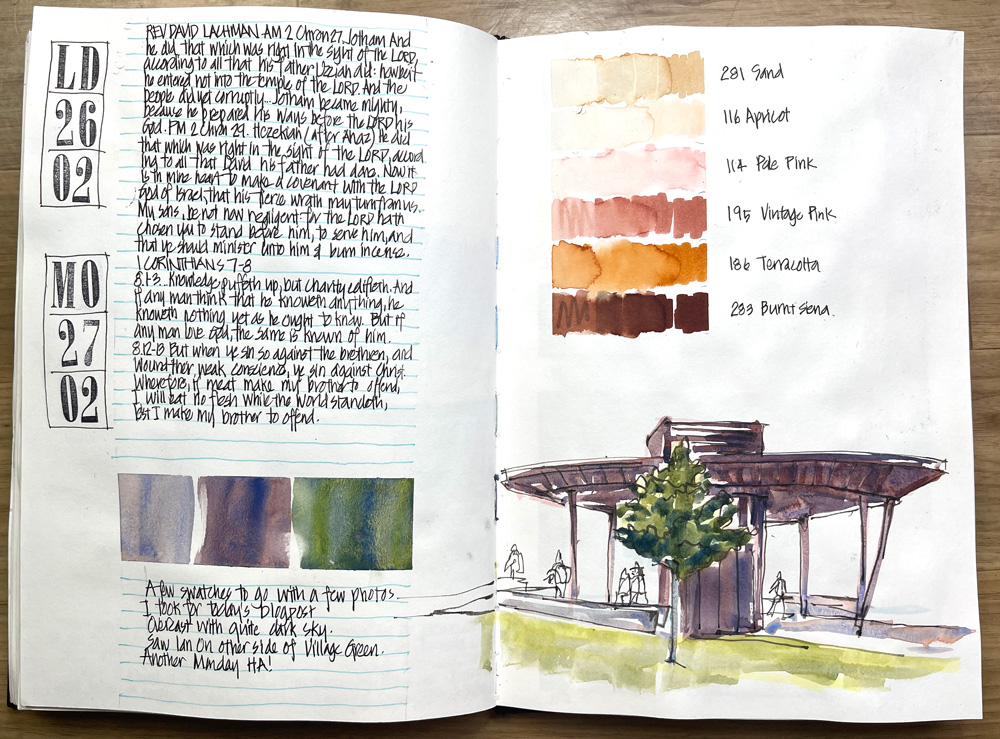 LD
26
02
REV DAVID LACHMAN AM 2 Chron 27. Jotham And
he did that which was right in the sight of the LORD,
according to all that his father Uzziah did: howbeit
he entered not into the temple of the LORD. And the
people did yet corruptly... Jotham became mighty,
because he prepared his ways before the LORD his
God. PM 2 Chron 29. Hezekiah (after Ahaz) he did
that which was right in the sight of the LORD, accord
ing to all that David his father had done. Now it
is in mine heart to make a covenant with the LORD
God of Israel, that his fierce wrath may turn from us.
My sons, be not now negligent for the LORD hath
chosen you to stand before him, to serve him, and
that ye should minister unto him & burn incense.
1 CORINTHIANS 7-8
MO
27
02
8.1-3... Knowledge puffeth up, but charity edifieth. And
if any man think that he knoweth anything, he
knoweth nothing yet as he ought to know. But if
any man love God, the same is known of him.
8.12-13 But when ye sin so against the brethren, and
wound their weak conscience, ye sin against Christ.
Wherefore, if meat make my brother to offend,
I will eat no flesh while the world standeth,
lest I make my brother to offend.
A few swatches to go with a few photos.
I took for today's blogpost
Overcast with quite dark sky.
Saw Ian on other side of Village Green.
Another Monday HA!
281 Sand
116 Apricot
114 Pale Pink
195 Vintage Pink
186 Terracotta
283 Burnt Siena.